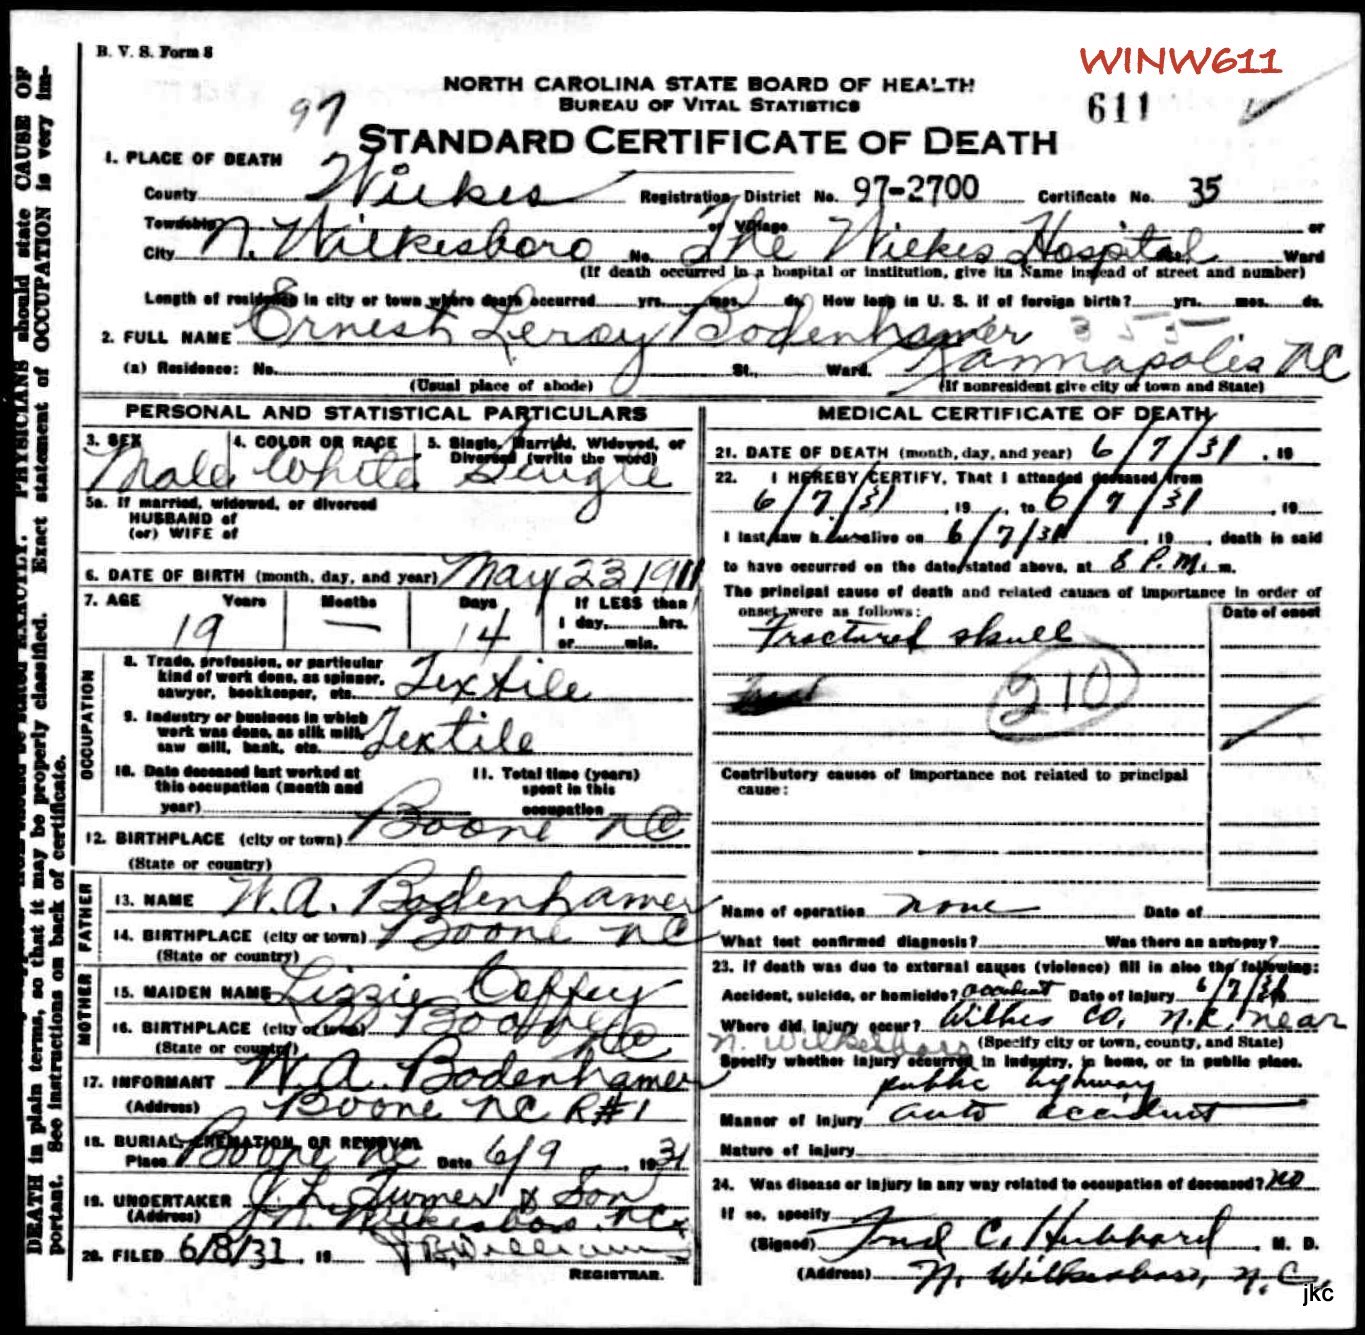 B. V. S. Form 8
WINW611
NORTH CAROLINA STATE BOARD OF HEALTH
BUREAU OF VITAL STATISTICS
97
611
STANDARD CERTIFICATE OF DEATH
1. PLACE OF DEATH
County Wilkes Registration District No. 97-2700 Certificate No. 35
Township or Village or
City N. Wilkesboro No. The Wilkes Hospital Ward
(If death occurred in a hospital or institution, give its Name instead of street and number)
Length of residence in city or town where death occurred yrs. mos. ds. How long in U. S. if of foreign birth? yrs. mos. ds.
2. FULL NAME Ernest Leroy Bodenhamer 355
(a) Residence: No. St., Ward. Kannapolis NC
(Usual place of abode) (If nonresident give city or town and State)
PERSONAL AND STATISTICAL PARTICULARS
3. SEX 4. COLOR OR RACE 5. Single, Married, Widowed, or
Divorced (write the word)
Male White Single
5a. If married, widowed, or divorced
HUSBAND of
(or) WIFE of
6. DATE OF BIRTH (month, day, and year) May 23 1911
7. AGE Years Months Days If LESS than
1 day, hrs.
or min.
19 — 14
OCCUPATION
8. Trade, profession, or particular
kind of work done, as spinner,
sawyer, bookkeeper, etc. Textile
9. Industry or business in which
work was done, as silk mill,
saw mill, bank, etc. Textile
10. Date deceased last worked at
this occupation (month and
year)
11. Total time (years)
spent in this
occupation
12. BIRTHPLACE (city or town) Boone NC
(State or country)
FATHER
13. NAME W. A. Bodenhamer
14. BIRTHPLACE (city or town) Boone NC
(State or country)
MOTHER
15. MAIDEN NAME Lizzie Coffey
16. BIRTHPLACE (city or town) Boone
(State or country) NC
17. INFORMANT W. A. Bodenhamer
(Address) Boone NC R#1
18. BURIAL, CREMATION, OR REMOVAL
Place Boone NC Date 6/9, 1931
19. UNDERTAKER J. L. Turner & Son
(Address) N. Wilkesboro NC
20. FILED 6/8/31 19 J B Williams
REGISTRAR.
MEDICAL CERTIFICATE OF DEATH
21. DATE OF DEATH (month, day, and year) 6/7/31, 19
22. I HEREBY CERTIFY, That I attended deceased from
6/7/31, 19, to 6/7/31, 19
I last saw h im alive on 6/7/31, 19, death is said
to have occurred on the date stated above, at 8 P.M. m.
The principal cause of death and related causes of importance in order of
onset were as follows: Date of onset
Fractured skull
210
Contributory causes of importance not related to principal
cause:
Name of operation none Date of
What test confirmed diagnosis? Was there an autopsy?
23. If death was due to external causes (violence) fill in also the following:
Accident, suicide, or homicide? accident Date of injury 6/7/31
Where did injury occur? Wilkes Co, N.C. near
N. Wilkesboro (Specify city or town, county, and State)
Specify whether injury occurred in industry, in home, or in public place.
public highway
Manner of injury auto accident
Nature of injury
24. Was disease or injury in any way related to occupation of deceased? NO
If so, specify
(Signed) Fred C. Hubbard, M. D.
(Address) N. Wilkesboro, N.C.
jkc
PHYSICIANS should state CAUSE OF
DEATH in plain terms, so that it may be properly classified. Exact statement of OCCUPATION is very im-
portant. See instructions on back of certificate.